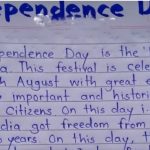 ependence D
pendence Day is the
a. This festival is cele
h August with great e
important and histori
Citizens. On this day i
dia got freedom from
years. On this day, t